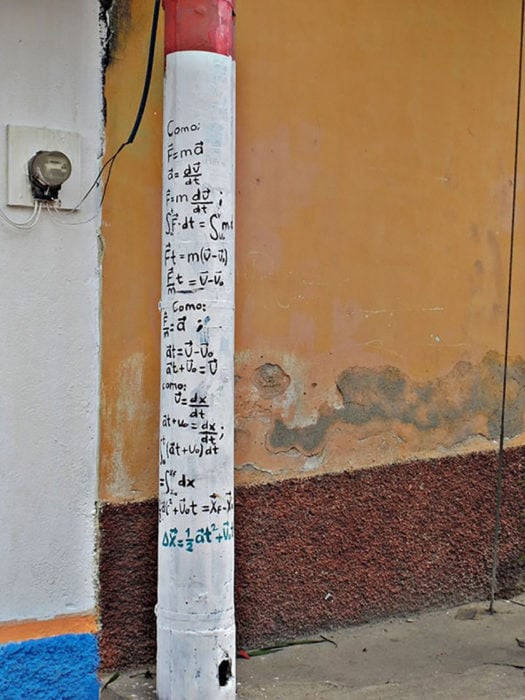 Como:
F⃗=ma⃗
a⃗=dv⃗/dt
F⃗=m dv⃗/dt ;
∫F⃗·dt = ∫m
F⃗t = m(v⃗-v⃗₀)
F⃗/m t = v⃗-v⃗₀
Como:
F⃗/m=a⃗ ;
a⃗t=v⃗-v⃗₀
a⃗t+v⃗₀=v⃗
Como:
v⃗=dx⃗/dt
a⃗t+v₀=dx⃗/dt ;
∫(a⃗t+v⃗₀)dt
=∫dx
a⃗t²+v⃗₀t =x⃗f-x⃗
Δx⃗=½a⃗t²+v⃗₀t